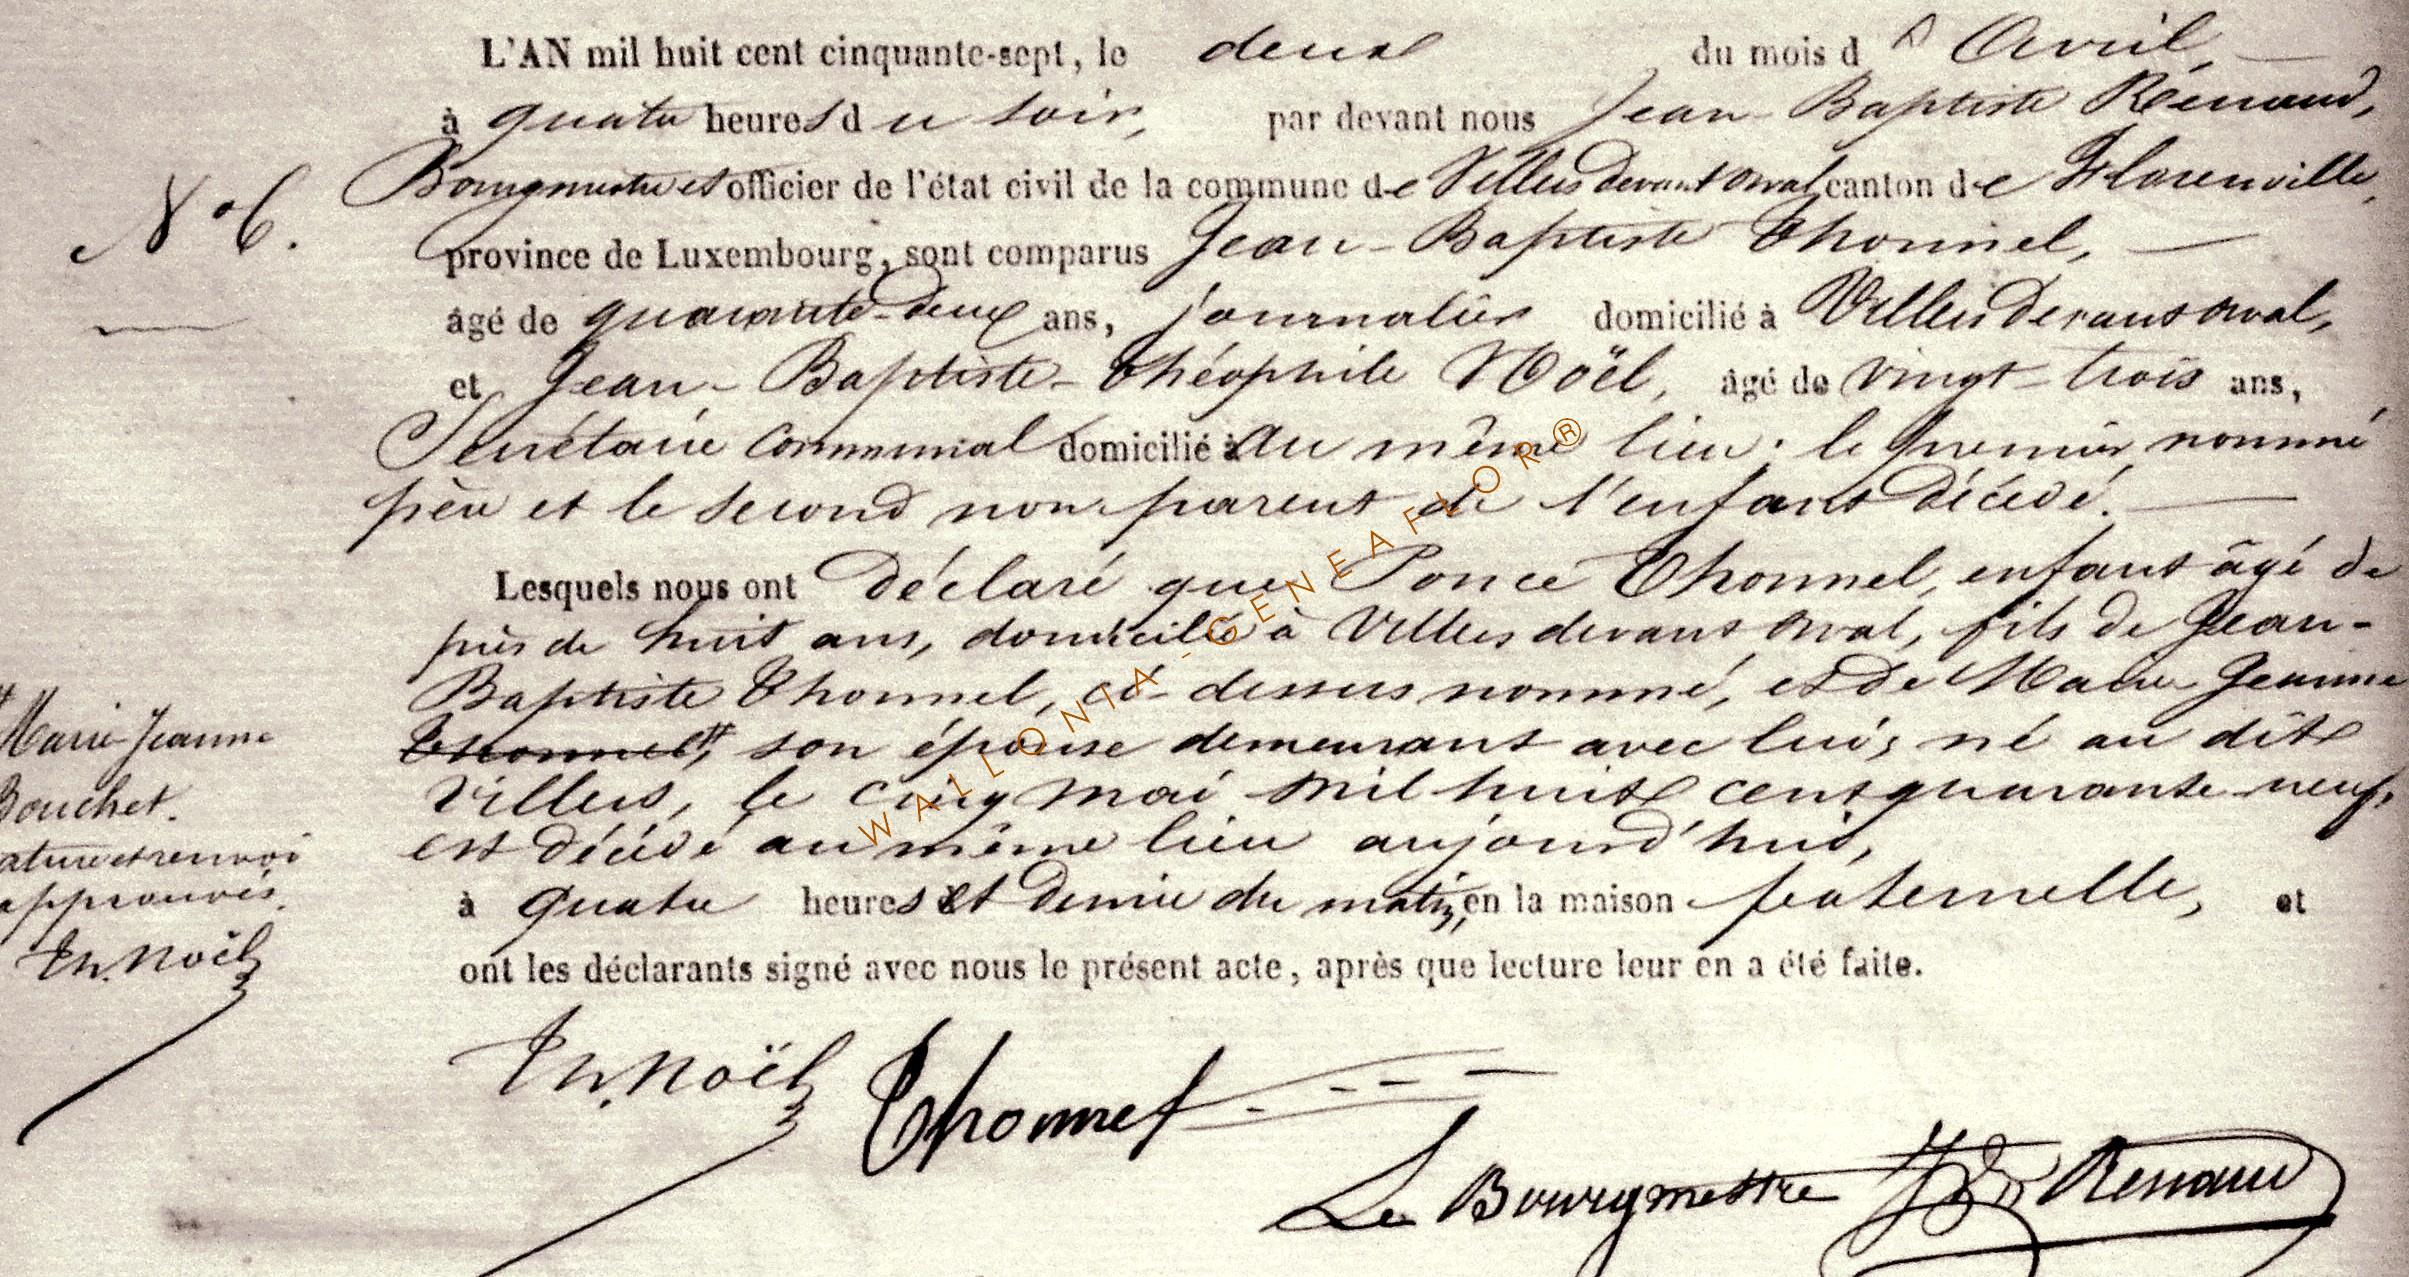 L'AN mil huit cent cinquante-sept, le deux du mois d'Avril,
à quatre heures du soir, par devant nous Jean-Baptiste Rénaud,
Bourgmestre et officier de l'état civil de la commune de Villers devant Orval canton de Florenville,
N° 6.
province de Luxembourg, sont comparus Jean-Baptiste Thonnel,
âgé de quarante-deux ans, journalier domicilié à Villers devant orval,
et Jean-Baptiste-Théophile Noël, âgé de vingt-trois ans,
Secrétaire communal domicilié à au même lieu; le premier nommé
père et le second non parent de l'enfant décédé.
Lesquels nous ont déclaré que Ponce Thonnel, enfant âgé de
près de huit ans, domicilié à Villers devant orval, fils de Jean-
Baptiste Thonnel, ci-dessus nommé, et de Marie Jeanne
Thonnel #, son épouse demeurant avec lui, né au dit
Villers, le cinq mai mil huit cent quarante-neuf,
est décédé au même lieu aujourd'hui,
à quatre heures et demie du matin, en la maison paternelle, et
ont les déclarants signé avec nous le présent acte, après que lecture leur en a été faite.
# Marie-Jeanne
Bouchet.
rature et renvoi
approuvés.
Th. Noël
Th. Noël Thonnel
Le Bourgmestre JB Renaud
WALLONIA-GENEAFLOR®